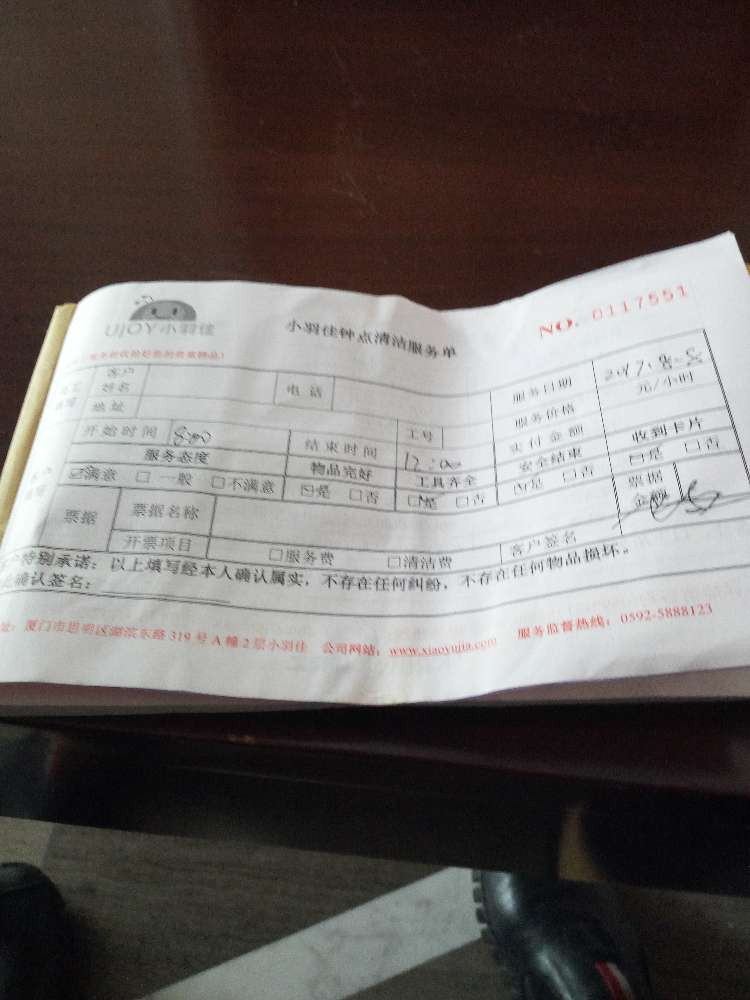 UJOY小羽佳
小羽佳钟点清洁服务单
NO. 0117551
客户姓名 电话 服务日期 2017.8.5
地址 工号 服务价格 元/小时
开始时间 8:00 结束时间 12:00 实付金额
服务态度 物品完好 工具齐全 安全结束 收到卡片
☑满意 □一般 □不满意 ☑是 □否 ☑是 □否 ☑是 □否 □是 □否
票据 票据名称 票据金额
开票项目 □服务费 □清洁费 客户签名
特别承诺：以上填写经本人确认属实，不存在任何纠纷，不存在任何物品损坏。
确认签名：
址：厦门市思明区湖滨东路319号A幢2层小羽佳 公司网站：www.xiaoyujia.com 服务监督热线：0592-5888123